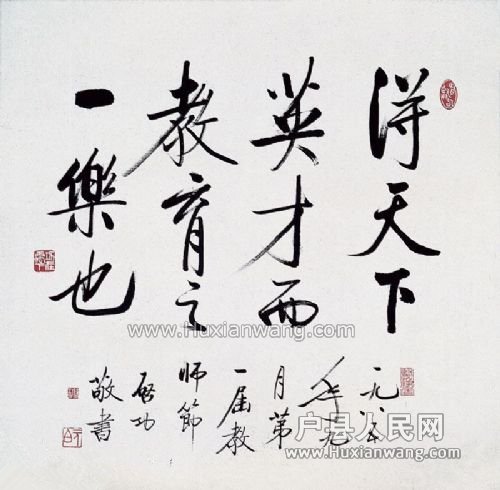 得天下
英才而
教育之
一樂也
一九八五
年九
月第
一届教
師節
啓功
敬書
www.Huxianwang.com
www.Huxianwang.com
户县人民网
www.Huxianwang.com